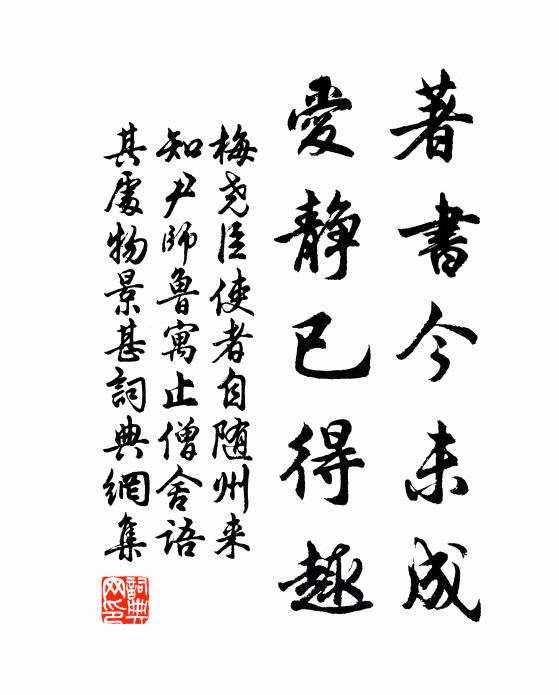 著書今未成
愛靜已得趣
梅尧臣使者自随州来
知尹師魯寓止僧舍语
其處物景甚詞典網集
詞典网印